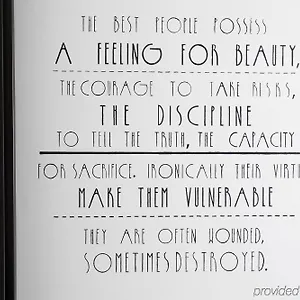 THE BEST PEOPLE POSSESS
A FEELING FOR BEAUTY,
THE COURAGE TO TAKE RISKS,
THE DISCIPLINE
TO TELL THE TRUTH, THE CAPACITY
FOR SACRIFICE. IRONICALLY THEIR VIRTU
MAKE THEM VULNERABLE
THEY ARE OFTEN WOUNDED,
SOMETIMES DESTROYED.
provided